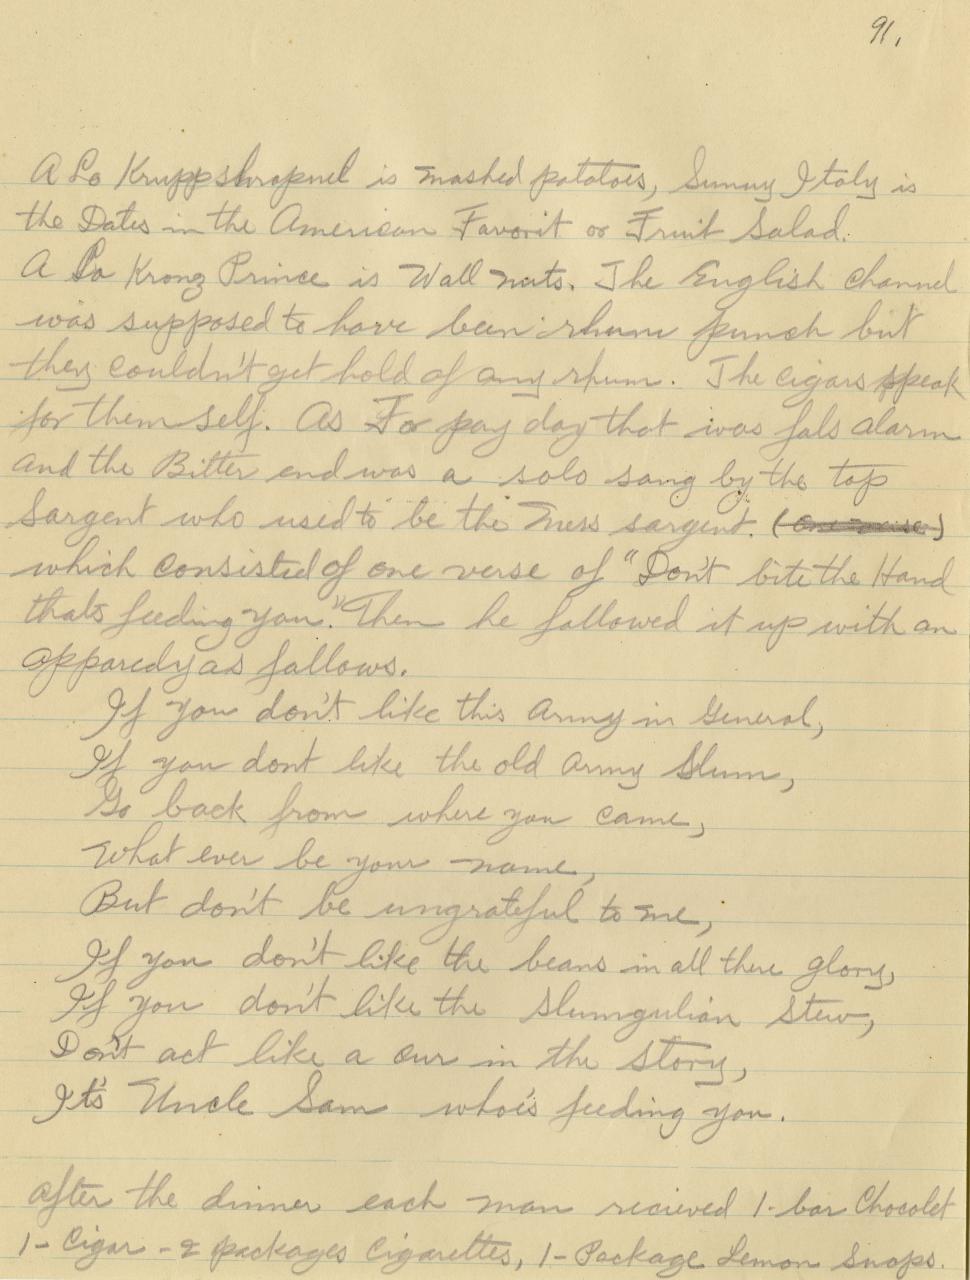 91.
A La Kruppshrapnel is mashed potatoes, Sunny Italy is
the Dates in the American Favorit or Fruit Salad.
A La Kronz Prince is Wall nuts. The English channel
was supposed to have been rhum punch but
they couldn't get hold of any rhum. The cigars speak
for them self. As For pay day that was fals alarm
and the Bitter end was a solo sang by the top
Sargent who used to be the mess sargent.
which consisted of one verse of "Don't bite the Hand
thats feeding you." Then he followed it up with an
apparedy as fallows.
If you don't like this Army in General,
If you dont like the old Army Slum,
Go back from where you came,
What ever be your name,
But don't be ungrateful to me,
If you don't like the beans in all there glory,
If you don't like the Slumgulian Stew,
Don't act like a cur in the story,
It's Uncle Sam who's feeding you.
After the dinner each man recieved 1-bar Chocolet
1-Cigar - 2 packages Cigarettes, 1-Package Lemon Snaps.